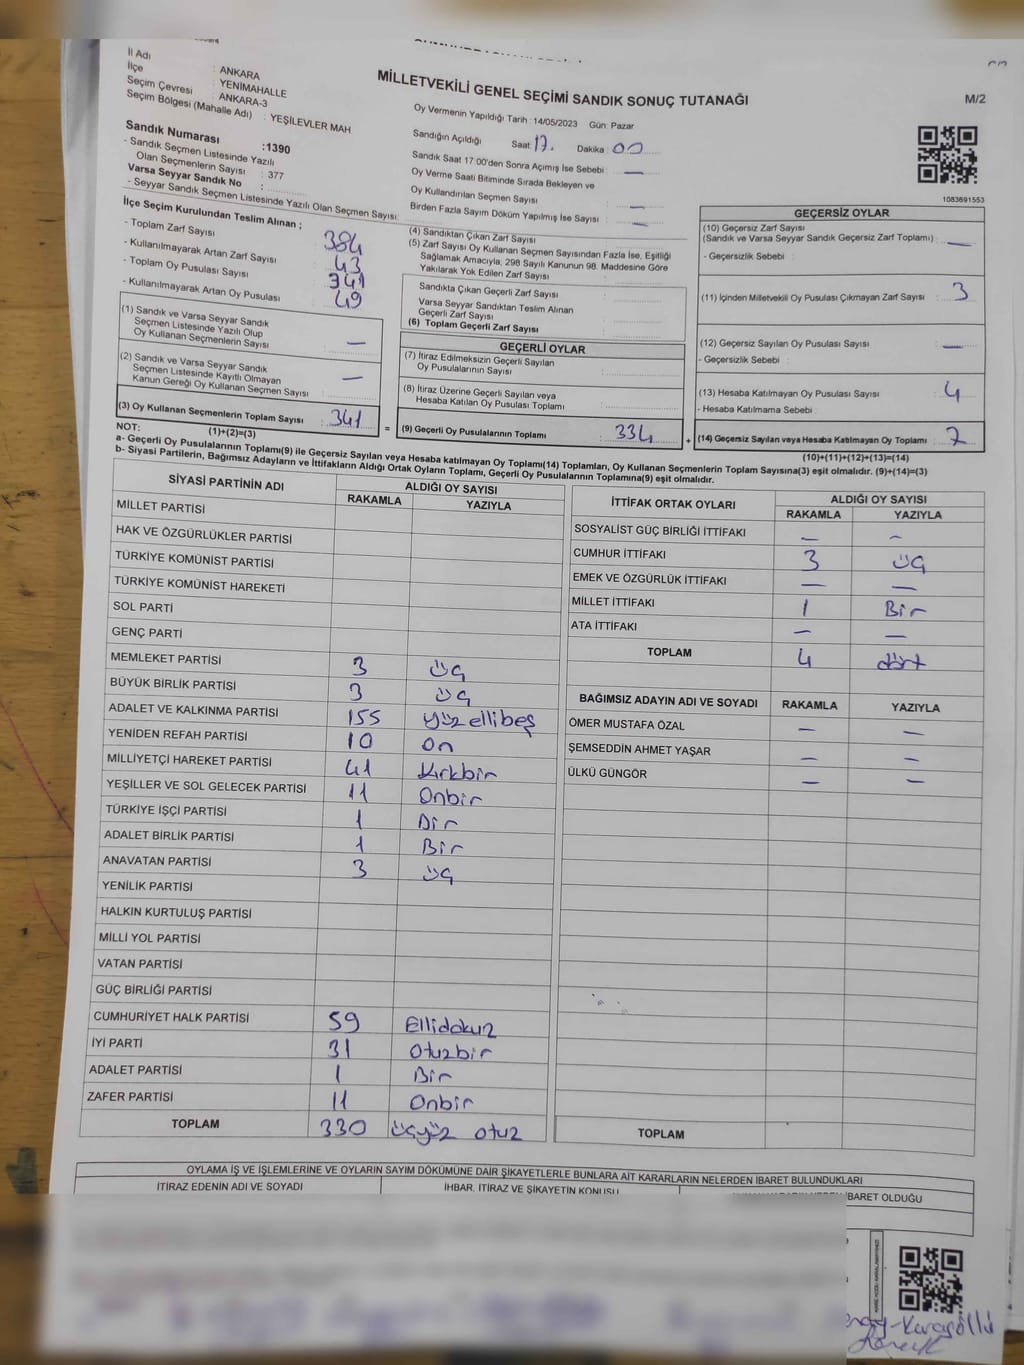 MİLLETVEKİLİ GENEL SEÇİMİ SANDIK SONUÇ TUTANAĞI
M/2
İl Adı : ANKARA
İlçe : YENİMAHALLE
Seçim Çevresi : ANKARA-3
Seçim Bölgesi (Mahalle Adı) : YEŞİLEVLER MAH
Sandık Numarası :1390
- Sandık Seçmen Listesinde Yazılı
Olan Seçmenlerin Sayısı : 377
Varsa Seyyar Sandık No :
- Seyyar Sandık Seçmen Listesinde Yazılı Olan Seçmen Sayısı:
Oy Vermenin Yapıldığı Tarih : 14/05/2023 Gün: Pazar
Sandığın Açıldığı Saat: 17. Dakika : 00
Sandık Saat 17:00'den Sonra Açımış İse Sebebi : —
Oy Verme Saati Bitiminde Sırada Bekleyen ve
Oy Kullandırılan Seçmen Sayısı : —
Birden Fazla Sayım Döküm Yapılmış İse Sayısı : —
1083691553
İlçe Seçim Kurulundan Teslim Alınan ;
- Toplam Zarf Sayısı : 384
- Kullanılmayarak Artan Zarf Sayısı : 43
- Toplam Oy Pusulası Sayısı : 341
- Kullanılmayarak Artan Oy Pusulası : 49
(1) Sandık ve Varsa Seyyar Sandık
Seçmen Listesinde Yazılı Olup
Oy Kullanan Seçmenlerin Sayısı : —
(2) Sandık ve Varsa Seyyar Sandık
Seçmen Listesinde Kayıtlı Olmayan
Kanun Gereği Oy Kullanan Seçmen Sayısı : —
(3) Oy Kullanan Seçmenlerin Toplam Sayısı : 341
(1)+(2)=(3)
(4) Sandıktan Çıkan Zarf Sayısı :
(5) Zarf Sayısı Oy Kullanan Seçmen Sayısından Fazla İse, Eşitliği
Sağlamak Amacıyla; 298 Sayılı Kanunun 98. Maddesine Göre
Yakılarak Yok Edilen Zarf Sayısı :
Sandıkta Çıkan Geçerli Zarf Sayısı :
Varsa Seyyar Sandıktan Teslim Alınan
Geçerli Zarf Sayısı :
(6) Toplam Geçerli Zarf Sayısı :
GEÇERLİ OYLAR
(7) İtiraz Edilmeksizin Geçerli Sayılan
Oy Pusulalarının Sayısı :
(8) İtiraz Üzerine Geçerli Sayılan veya
Hesaba Katılan Oy Pusulası Toplamı :
= (9) Geçerli Oy Pusulalarının Toplamı : 334
GEÇERSİZ OYLAR
(10) Geçersiz Zarf Sayısı
(Sandık ve Varsa Seyyar Sandık Geçersiz Zarf Toplamı) : —
- Geçersizlik Sebebi :
(11) İçinden Milletvekili Oy Pusulası Çıkmayan Zarf Sayısı : 3
(12) Geçersiz Sayılan Oy Pusulası Sayısı : —
- Geçersizlik Sebebi :
(13) Hesaba Katılmayan Oy Pusulası Sayısı : 4
- Hesaba Katılmama Sebebi :
+ (14) Geçersiz Sayılan veya Hesaba Katılmayan Oy Toplamı : 7
(10)+(11)+(12)+(13)=(14)
NOT:
a- Geçerli Oy Pusulalarının Toplamı(9) ile Geçersiz Sayılan veya Hesaba katılmayan Oy Toplamı(14) Toplamları, Oy Kullanan Seçmenlerin Toplam Sayısına(3) eşit olmalıdır. (9)+(14)=(3)
b- Siyasi Partilerin, Bağımsız Adayların ve İttifakların Aldığı Ortak Oyların Toplamı, Geçerli Oy Pusulalarının Toplamına(9) eşit olmalıdır.
SİYASİ PARTİNİN ADI ALDIĞI OY SAYISI
RAKAMLA YAZIYLA
MİLLET PARTİSİ
HAK VE ÖZGÜRLÜKLER PARTİSİ
TÜRKİYE KOMÜNİST PARTİSİ
TÜRKİYE KOMÜNİST HAREKETİ
SOL PARTİ
GENÇ PARTİ
MEMLEKET PARTİSİ 3 üç
BÜYÜK BİRLİK PARTİSİ 3 üç
ADALET VE KALKINMA PARTİSİ 155 yüzellibeş
YENİDEN REFAH PARTİSİ 10 on
MİLLİYETÇİ HAREKET PARTİSİ 41 Kırkbir
YEŞİLLER VE SOL GELECEK PARTİSİ 11 Onbir
TÜRKİYE İŞÇİ PARTİSİ 1 Bir
ADALET BİRLİK PARTİSİ 1 Bir
ANAVATAN PARTİSİ 3 üç
YENİLİK PARTİSİ
HALKIN KURTULUŞ PARTİSİ
MİLLİ YOL PARTİSİ
VATAN PARTİSİ
GÜÇ BİRLİĞİ PARTİSİ
CUMHURİYET HALK PARTİSİ 59 Ellidokuz
İYİ PARTİ 31 Otuzbir
ADALET PARTİSİ 1 Bir
ZAFER PARTİSİ 11 Onbir
TOPLAM 330 üçyüz otuz
İTTİFAK ORTAK OYLARI ALDIĞI OY SAYISI
RAKAMLA YAZIYLA
SOSYALİST GÜÇ BİRLİĞİ İTTİFAKI — —
CUMHUR İTTİFAKI 3 üç
EMEK VE ÖZGÜRLÜK İTTİFAKI — —
MİLLET İTTİFAKI 1 Bir
ATA İTTİFAKI — —
TOPLAM 4 dört
BAĞIMSIZ ADAYIN ADI VE SOYADI RAKAMLA YAZIYLA
ÖMER MUSTAFA ÖZAL — —
ŞEMSEDDİN AHMET YAŞAR — —
ÜLKÜ GÜNGÖR — —
TOPLAM
OYLAMA İŞ VE İŞLEMLERİNE VE OYLARIN SAYIM DÖKÜMÜNE DAİR ŞİKAYETLERLE BUNLARA AİT KARARLARIN NELERDEN İBARET BULUNDUKLARI
İTİRAZ EDENİN ADI VE SOYADI İHBAR, İTİRAZ VE ŞİKAYETİN KONUSU İBARET OLDUĞU